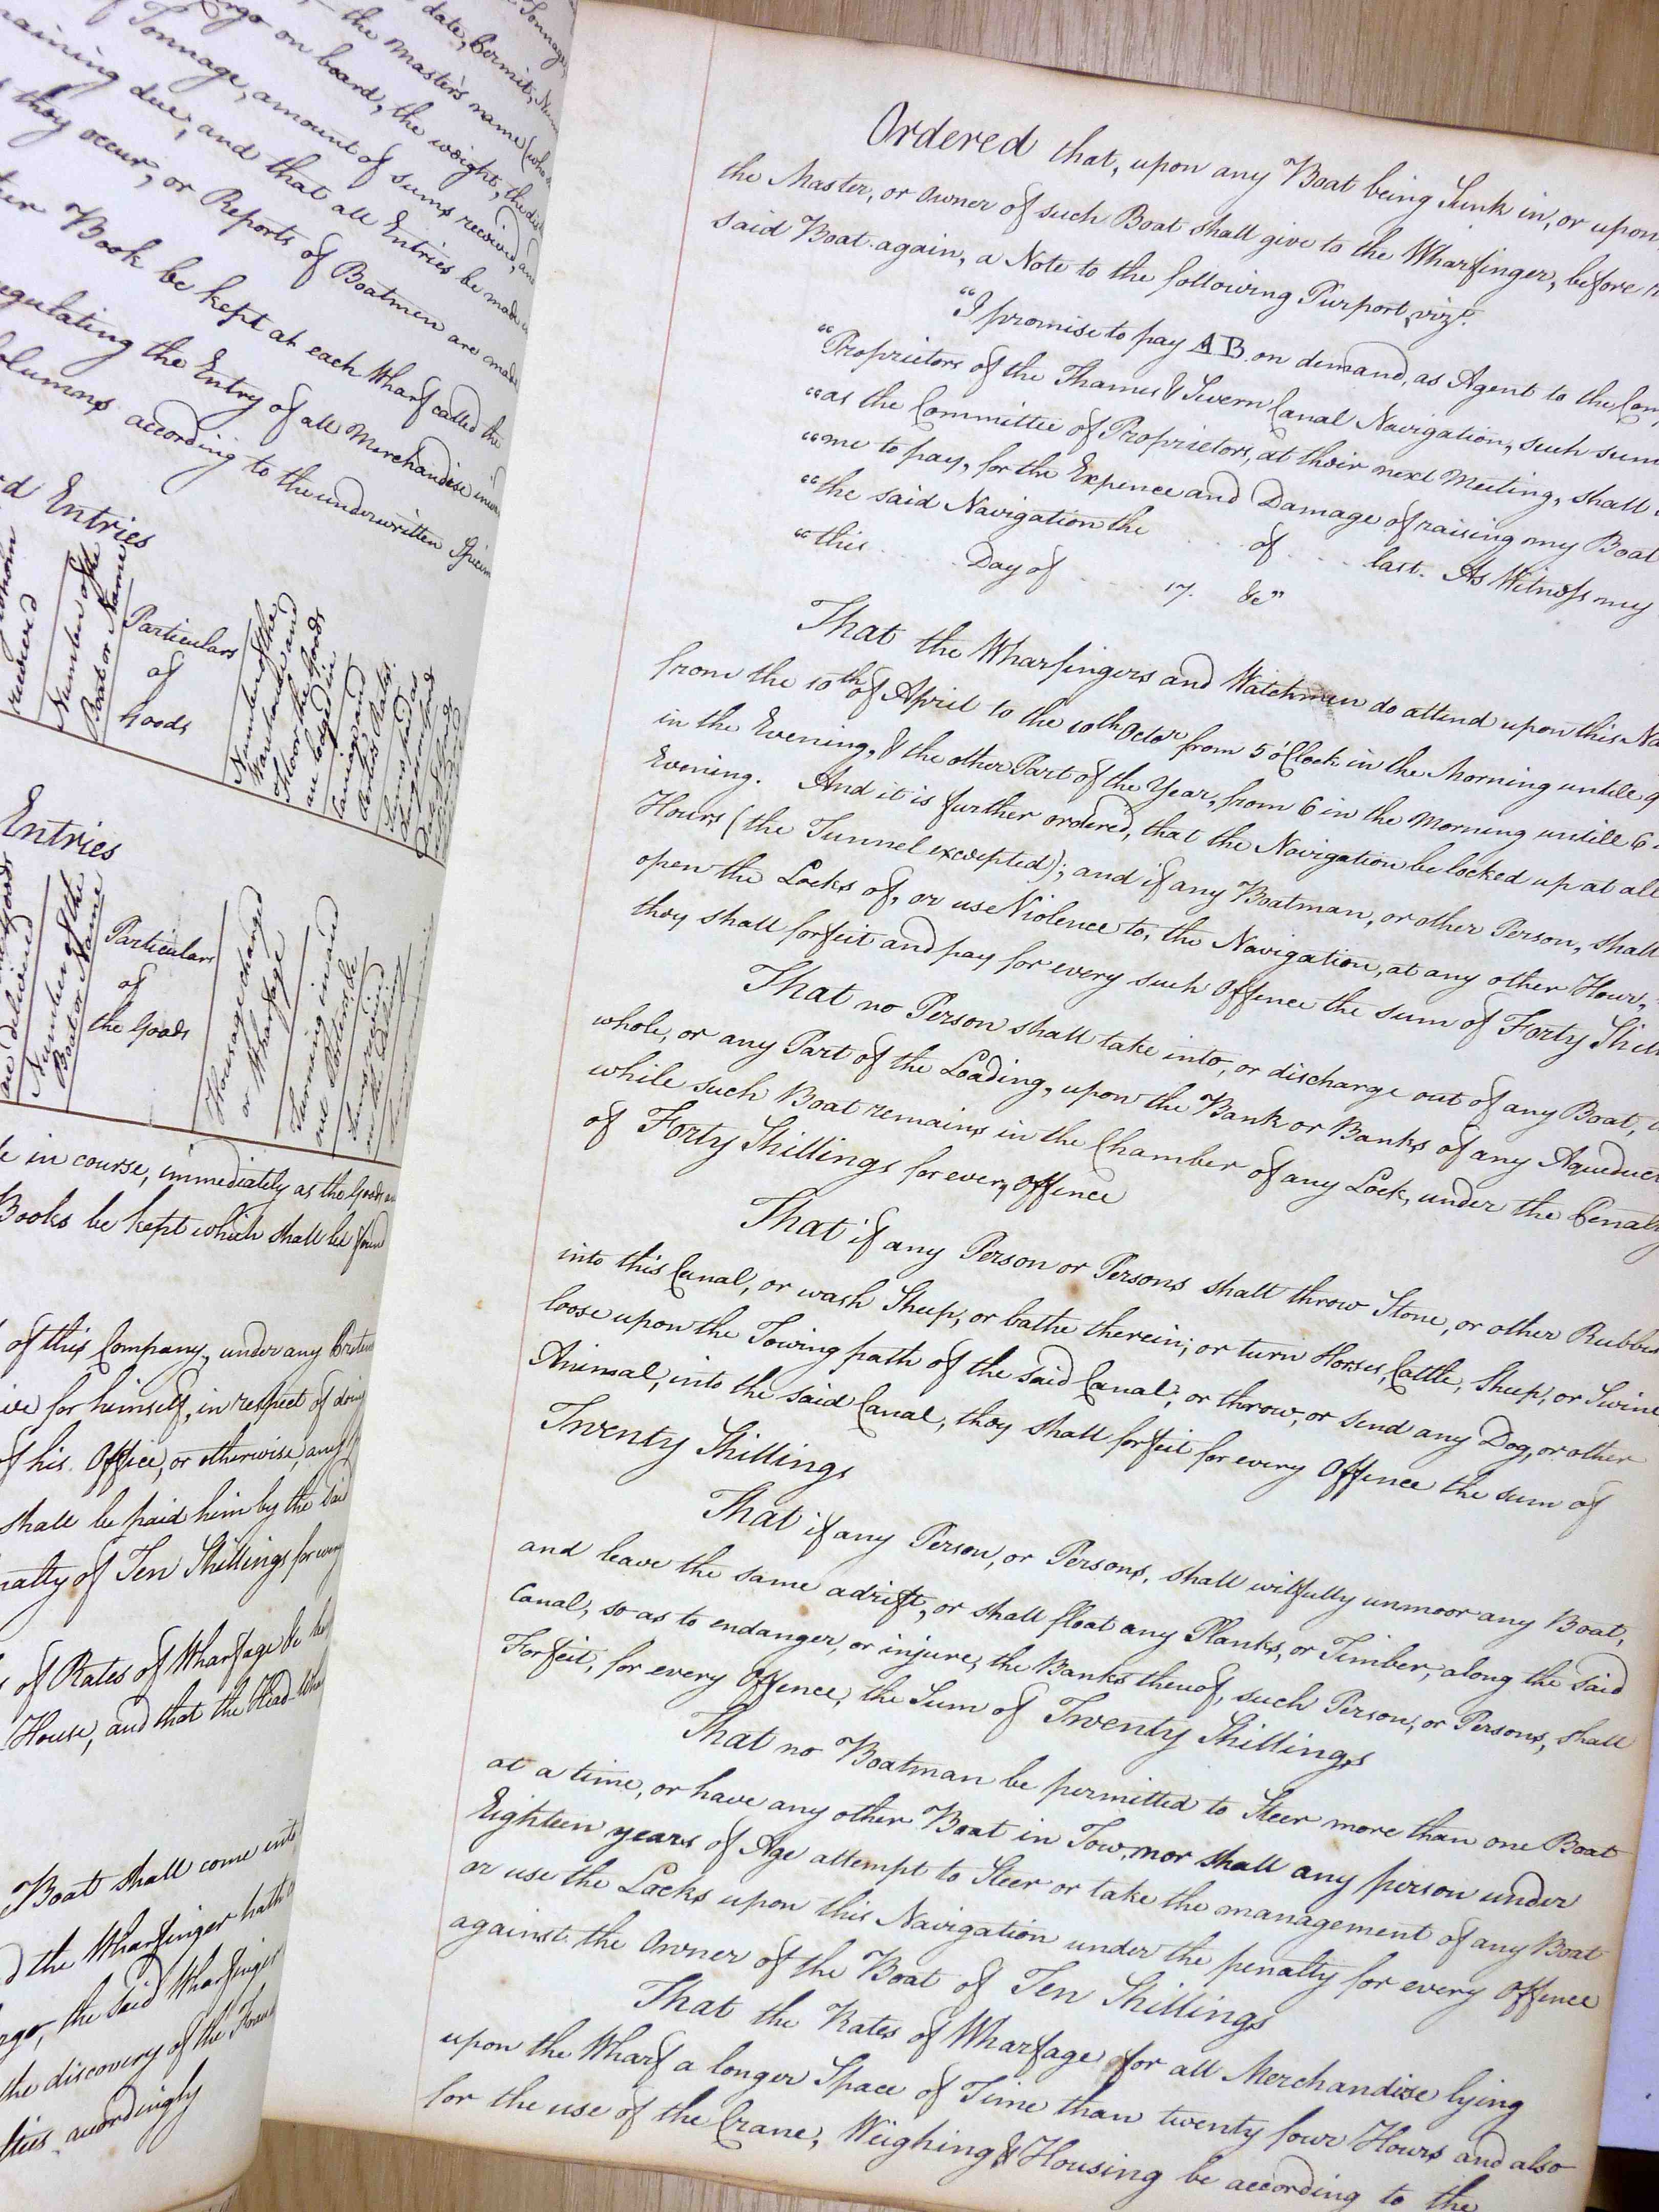 date, Permit,
the Master's name (who
Cargo on board, the weight, the
Tonnage, amount of sums received, and
due, and that all Entries be made
they occur, or Reports of Boatmen are made
Book be kept at each Wharf called the
regulating the Entry of all Merchandise
Columns according to the underwritten
Entries
received
Number of the
Boat or Name
Particulars
of
Goods
Number of the
Warehouse and
Floor the Goods
are lodged in
Entries
are delivered
Number of the
Boat or Name
Particulars
of
the Goods
Housage charged
or Wharfage
Turning in and
out Porters &c
Sums received
in course, immediately as the Goods
Books be kept which shall be
of this Company, under any
for himself, in respect of doing
of his Office, or otherwise, any
shall be paid him by the said
of Ten Shillings for every
of Rates of Wharfage &c
House, and that the Head
Boat shall come into
the Wharfinger hath
the said Wharfinger
the discovery of the
accordingly
Ordered that, upon any Boat being Sunk in, or upon
the Master, or Owner of such Boat shall give to the Wharfinger, before
said Boat again, a Note to the following Purport, vizt.
"I promise to pay AB on demand, as Agent to the
"Proprietors of the Thames & Severn Canal Navigation, such sum
"as the Committee of Proprietors, at their next Meeting, shall
"me to pay, for the Expence and Damage of raising my Boat
"the said Navigation the .... of .... last. As Witness my
"this .... Day of .... 17. &c"
That the Wharfingers and Watchmen do attend upon this
from the 10th of April to the 10th Octor from 5 oClock in the Morning untill 9
in the Evening, & the other Part of the Year, from 6 in the Morning untill 6
Evening. And it is further ordered, that the Navigation be locked up at all
Hours (the Tunnel excepted); and if any Boatman, or other Person, shall
open the Locks of, or use Violence to, the Navigation, at any other Hour,
they shall forfeit and pay for every such Offence the sum of Forty
That no Person shall take into, or discharge out of any Boat,
whole, or any Part of the Loading, upon the Bank or Banks of any
while such Boat remains in the Chamber of any Lock, under the
of Forty Shillings for every Offence
That if any Person or Persons shall throw Stone, or other
into this Canal, or wash Sheep, or bathe therein; or turn Horses, Cattle, Sheep, or Swine
loose upon the Towing path of the said Canal; or throw, or send any Dog, or other
Animal, into the said Canal, they shall forfeit for every Offence the sum of
Twenty Shillings
That if any Person, or Persons, shall wilfully unmoor any Boat,
and leave the same adrift, or shall float any Planks, or Timber, along the said
Canal, so as to endanger, or injure, the Banks thereof, such Person, or Persons, shall
Forfeit, for every Offence, the Sum of Twenty Shillings
That no Boatman be permitted to Steer more than one Boat
at a time, or have any other Boat in Tow, nor shall any person under
Eighteen years of Age attempt to Steer or take the management of any Boat
or use the Locks upon this Navigation under the penalty for every Offence
against the Owner of the Boat of Ten Shillings
That the Rates of Wharfage for all Merchandize lying
upon the Wharf a longer Space of Time than twenty four Hours and also
for the use of the Crane, Weighing & Housing be according to the